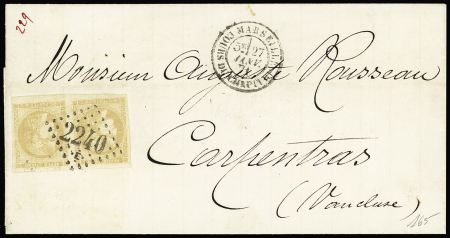 229
MARSEILLE COURS DU CHAPITRE
3E 27
JANV.
71
Monsieur Auguste Rousseau
2240
E
Carpentras
(Vaucluse)
165